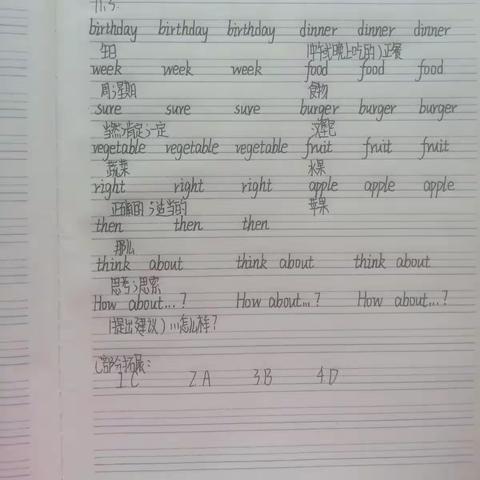 11.3.
birthday birthday birthday dinner dinner dinner
生日 (中午或晚上吃的)正餐
week week week food food food
周;星期 食物
sure sure sure burger burger burger
当然;肯定;一定 汉堡
vegetable vegetable vegetable fruit fruit fruit
蔬菜 水果
right right right apple apple apple
正确的;适当的 苹果
then then then
那么
think about think about think about
思考;思索
How about...? How about...? How about...?
(提出建议)…怎么样?
C部分拓展:
1.C 2.A 3.B 4.D